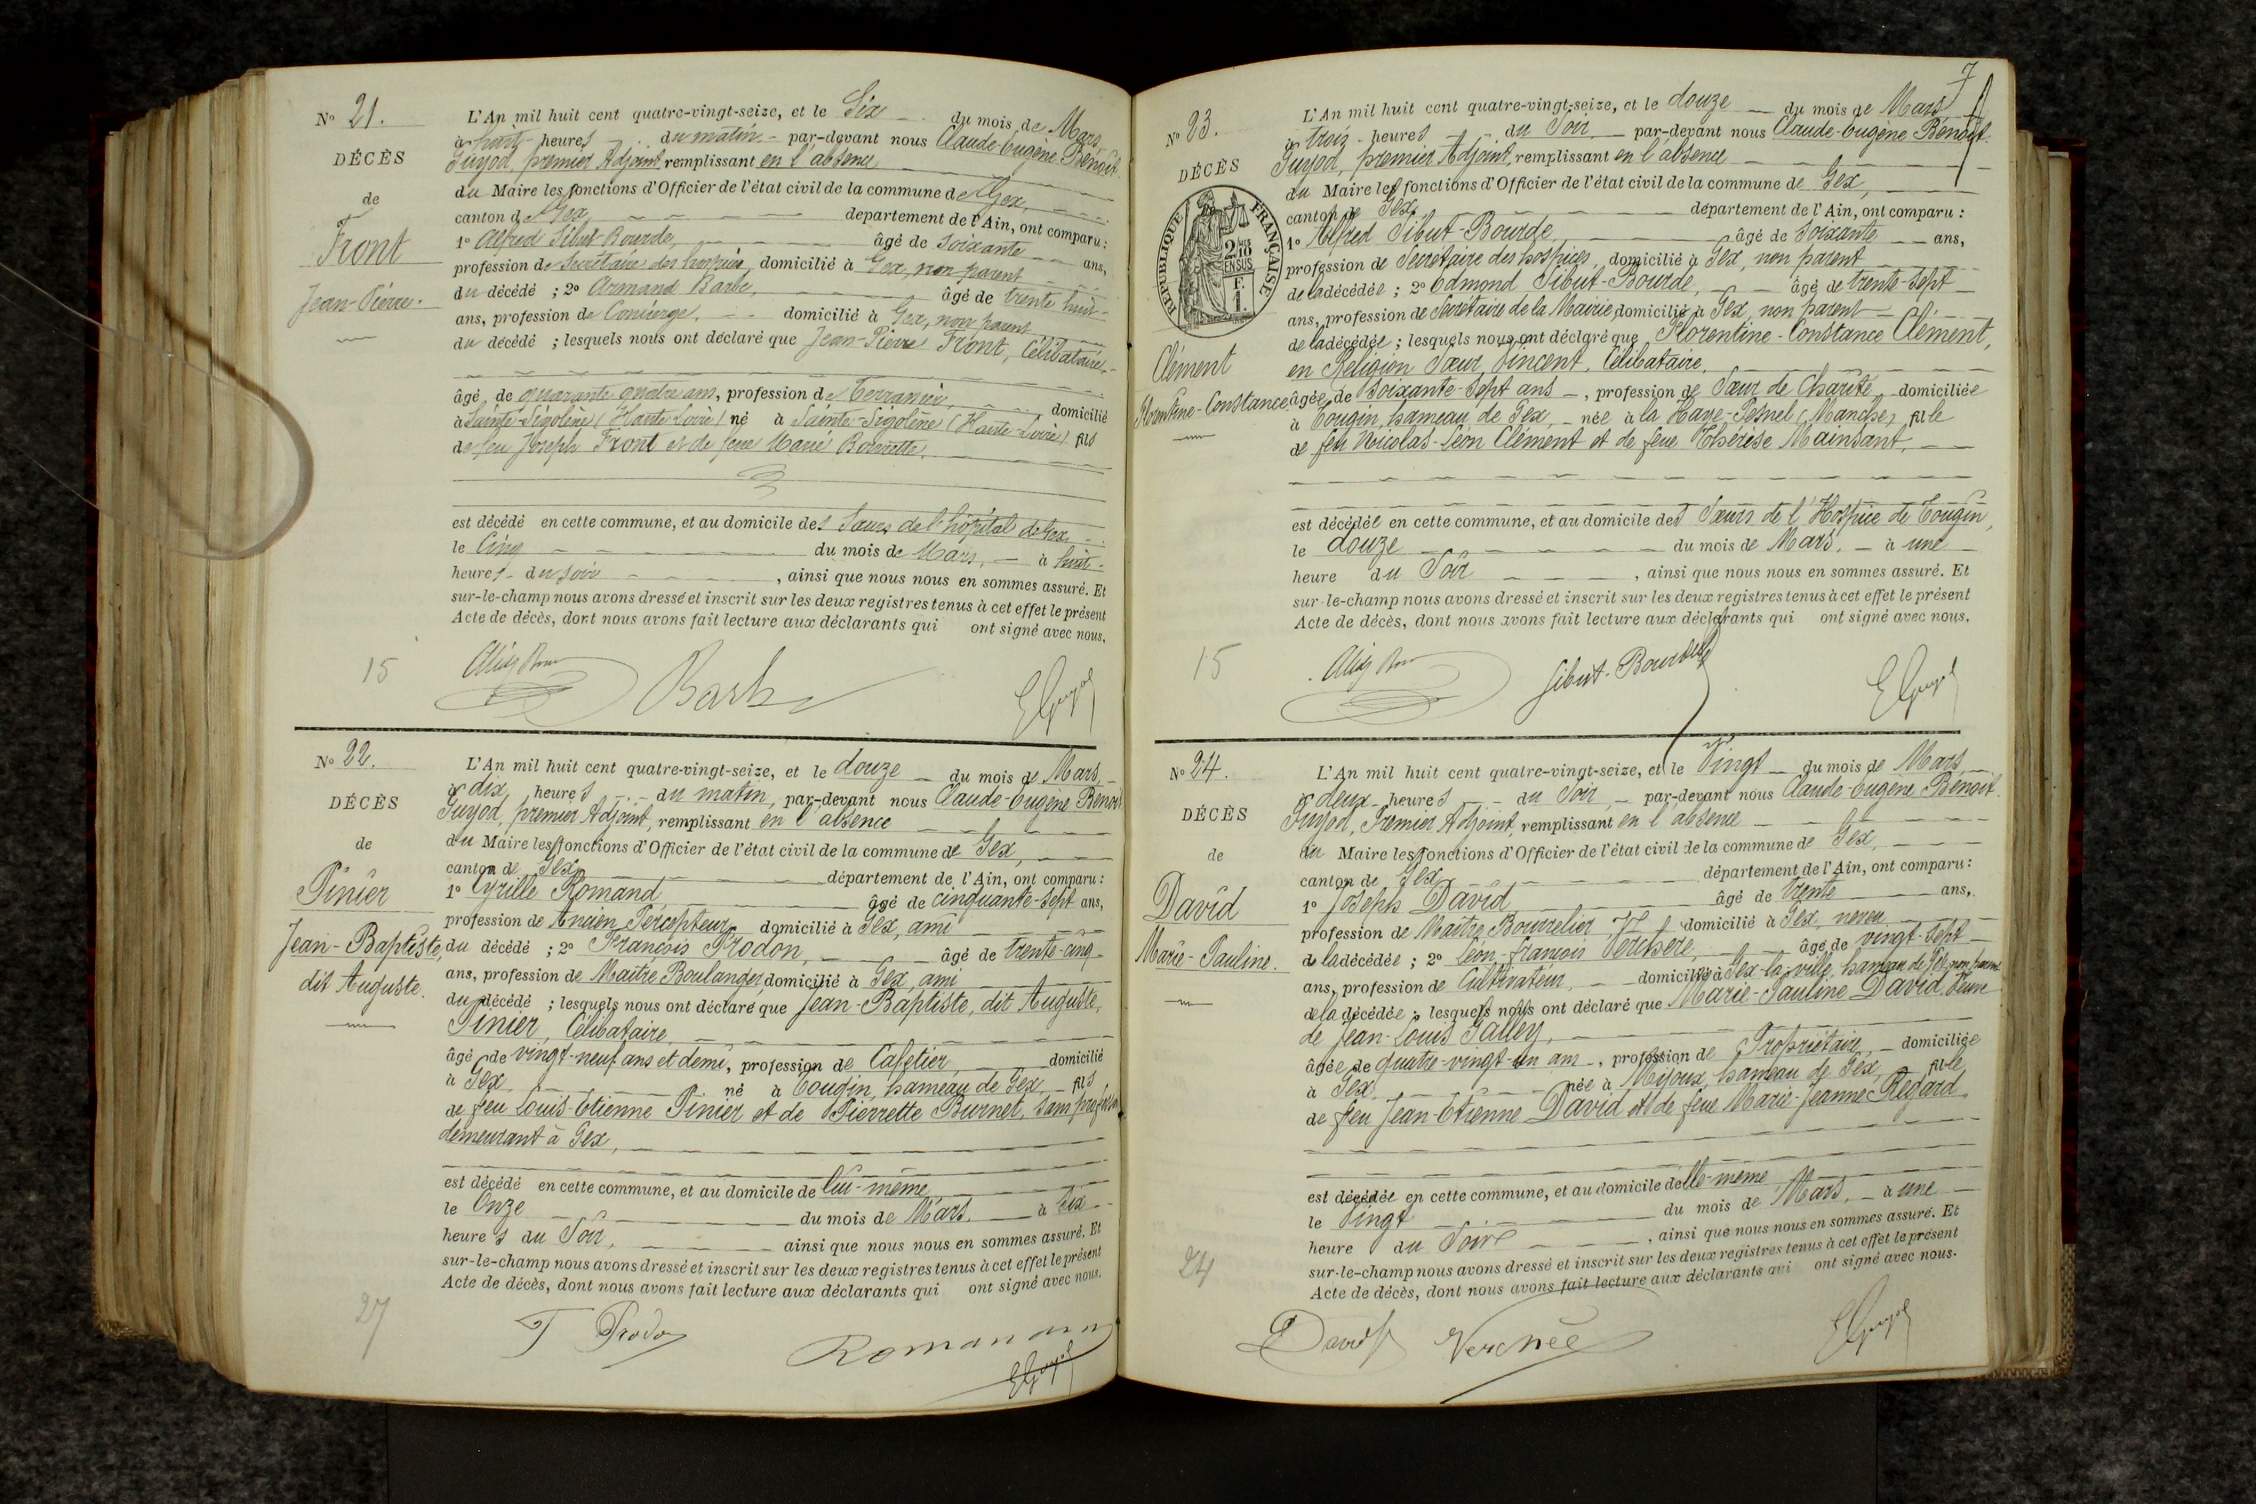 No 21.
DÉCÈS
de
Front
Jean-Pierre.
L'An mil huit cent quatre-vingt-seize, et le Six du mois de Mars,
à huit heures du matin par-devant nous Claude-Eugène Benoit
Guyod, premier Adjoint, remplissant en l'absence
du Maire les fonctions d'Officier de l'état civil de la commune de Gex,
canton de Gex département de l'Ain, ont comparu :
1o Alfred Sibut-Bourde, âgé de soixante ans,
profession de Secrétaire des hospices, domicilié à Gex, non parent
du décédé ; 2o Armand Barbe, âgé de trente huit
ans, profession de Concierge, domicilié à Gex, non parent
du décédé ; lesquels nous ont déclaré que Jean-Pierre Front, Célibataire,
âgé de quarante quatre ans, profession de Terrassier, domicilié
à Sainte-Sigolène (Haute-Loire) né à Sainte-Sigolène (Haute-Loire) fils
de feu Joseph Front et de feue Marie
est décédé en cette commune, et au domicile des Sœurs de l'hôpital de Gex
le Cinq du mois de Mars, à huit
heures du soir , ainsi que nous nous en sommes assuré. Et
sur-le-champ nous avons dressé et inscrit sur les deux registres tenus à cet effet le présent
Acte de décès, dont nous avons fait lecture aux déclarants qui ont signé avec nous.
15
Barbe
E Guyod
No 22.
DÉCÈS
de
Pinier
Jean-Baptiste,
dit Auguste.
L'An mil huit cent quatre-vingt-seize, et le douze du mois de Mars,
à dix heures du matin, par-devant nous Claude-Eugène Benoit
Guyod, premier Adjoint, remplissant en l'absence
du Maire les fonctions d'Officier de l'état civil de la commune de Gex,
canton de Gex département de l'Ain, ont comparu :
1o Cyrille Romand, âgé de cinquante-sept ans,
profession de Ancien Percepteur domicilié à Gex, ami
du décédé ; 2o François Prodon, âgé de trente-cinq
ans, profession de Maître Boulanger, domicilié à Gex, ami
du décédé ; lesquels nous ont déclaré que Jean-Baptiste, dit Auguste,
Pinier, Célibataire,
âgé de vingt-neuf ans et demi, profession de Cafetier, domicilié
à Gex né à Tougin, hameau de Gex, fils
de feu Louis-Etienne Pinier et de Pierrette Burnet, sans profession
demeurant à Gex,
est décédé en cette commune, et au domicile de lui-même
le Onze du mois de Mars, à six
heures du Soir, ainsi que nous nous en sommes assuré. Et
sur-le-champ nous avons dressé et inscrit sur les deux registres tenus à cet effet le présent
Acte de décès, dont nous avons fait lecture aux déclarants qui ont signé avec nous.
27
F Prodon
Romand
E Guyod
7
No 23.
DÉCÈS
RÉPUBLIQUE FRANÇAISE
2/10
EN SUS
F.
1.
Clément
Florentine-Constance
L'An mil huit cent quatre-vingt-seize, et le douze du mois de Mars
à trois heures du Soir par-devant nous Claude-Eugène Benoit
Guyod, premier Adjoint, remplissant en l'absence
du Maire les fonctions d'Officier de l'état civil de la commune de Gex,
canton de Gex, département de l'Ain, ont comparu :
1o Alfred Sibut-Bourde, âgé de soixante ans,
profession de Secrétaire des hospices, domicilié à Gex, non parent
de la décédée ; 2o Edmond Sibut-Bourde, âgé de trente-sept
ans, profession de Secrétaire de la Mairie, domicilié à Gex, non parent
de la décédée ; lesquels nous ont déclaré que Florentine-Constance Clément,
en Religion Sœur Vincent, Célibataire,
âgée de Soixante-Sept ans , profession de Sœur de Charité domiciliée
à Tougin, hameau de Gex, née à la Haye-Pesnel (Manche) fille
de feu Nicolas-Léon Clément et de feue Thérèse Mainsant,
est décédée en cette commune, et au domicile des Sœurs de l'Hospice de Tougin,
le douze du mois de Mars, à une
heure du Soir , ainsi que nous nous en sommes assuré. Et
sur-le-champ nous avons dressé et inscrit sur les deux registres tenus à cet effet le présent
Acte de décès, dont nous avons fait lecture aux déclarants qui ont signé avec nous.
15
Sibut-Bourde
E Guyod
No 24.
DÉCÈS
de
David
Marie-Pauline.
L'An mil huit cent quatre-vingt-seize, et le Vingt du mois de Mars
à deux heures du Soir, par-devant nous Claude-Eugène Benoit
Guyod, Premier Adjoint, remplissant en l'absence
du Maire les fonctions d'Officier de l'état civil de la commune de Gex,
canton de Gex département de l'Ain, ont comparu :
1o Joseph David, âgé de trente ans,
profession de Maître Bourrelier, domicilié à Gex, neveu
de la décédée ; 2o Léon-François Verchère, âgé de vingt-sept
ans, profession de Cultivateur, domicilié à Gex-la-ville, hameau de Gex, non parent
de la décédée ; lesquels nous ont déclaré que Marie-Pauline David, Veuve
de Jean-Louis Galley,
âgée de quatre-vingt-un ans , profession de Propriétaire, domiciliée
à Gex née à Mijoux, hameau de Gex, fille
de feu Jean-Etienne David et de feue Marie-Jeanne Regard
est décédée en cette commune, et au domicile d'elle-même
le Vingt du mois de Mars, à une
heure du Soir , ainsi que nous nous en sommes assuré. Et
sur-le-champ nous avons dressé et inscrit sur les deux registres tenus à cet effet le présent
Acte de décès, dont nous avons fait lecture aux déclarants qui ont signé avec nous.
24
David
E Guyod